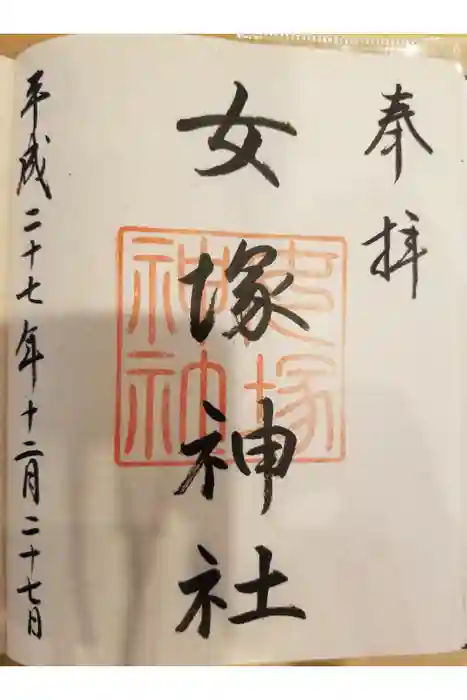 奉拝
女塚神社
平成二十七年十二月二十七日